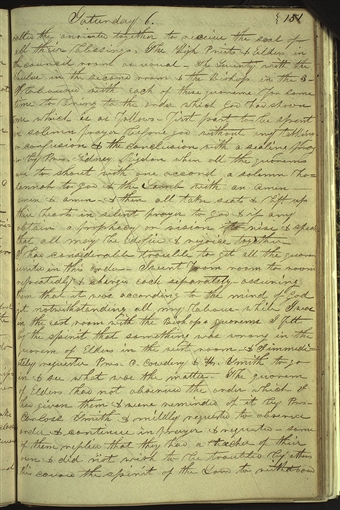 Saturday 6. 151
called the anointed together to receive the seal of
all their blessings. The High Priests & Elders in
the council room as usual – The Seventy with the
Twelve in the second room & the Bishop in the 3–
I labored with each of these quorums for some
time to bring to the order which God had shown
me which is as follows – First part to be spent
in solemn prayer before god without any talking
or confusion & the conclusion with a sealing prayer
by Pres. Sidney Rigdon when all the quorums
were to shout with one accord a solemn hosannah
to god & the Lamb with an amen
amen & amen – & then all take seats & lift up
their hearts in silent prayer to God & if any
obtain a prophecy or vision to rise & speak
that all may be edified & rejoice together
I had considerable trouble to get all the quorums
united in this order – I went from room to room
repeatedly & charged each separately assuring
them that it was according to the mind of God
yet notwithstanding all my labour while I was
in the east room with the Bishops quorums I felt
by the spirit that something was wrong in the
quorum of Elders in the west room – & I immediately
requested Pres. O. Cowdery & H. Smith to go
in & see what was the matter – The quorum
of Elders had not observed the order which I
had given them & were reminded of it by Pres.
Carlos Smith & mildly requested to observe
order & continue in prayer & requested – some
of them replied that they had a teacher of their
own & did not wish to be troubled by others
this caused the spirit of the Lord to withdraw